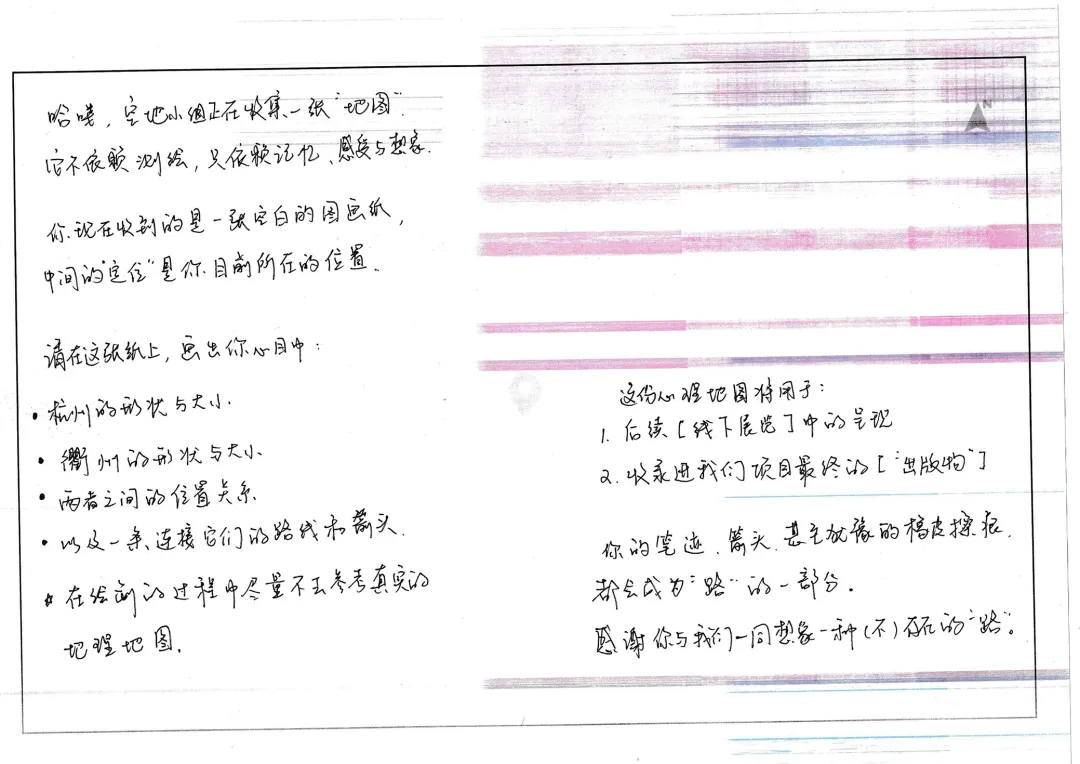 哈喽，空地小组正在收集一张“地图”
它不依赖测绘，只依赖记忆、感受与想象.
你现在收到的是一张空白的图画纸，
中间的“定位”是你目前所在的位置.
请在这张纸上，画出你心目中：
• 杭州的形状与大小.
• 衢州的形状与大小
• 两者之间的位置关系.
• 以及一条连接它们的路线和箭头.
* 在绘制的过程中尽量不去参考真实的
地理地图.
N
这份心理地图将用于：
1. 后续［线下展览］中的呈现
2. 收录进我们项目最终的［“出版物”］
你的笔迹、箭头、甚至犹豫的橡皮擦痕，
都会成为“路”的一部分.
感谢你与我们一同想象一种(不)存在的“路”。